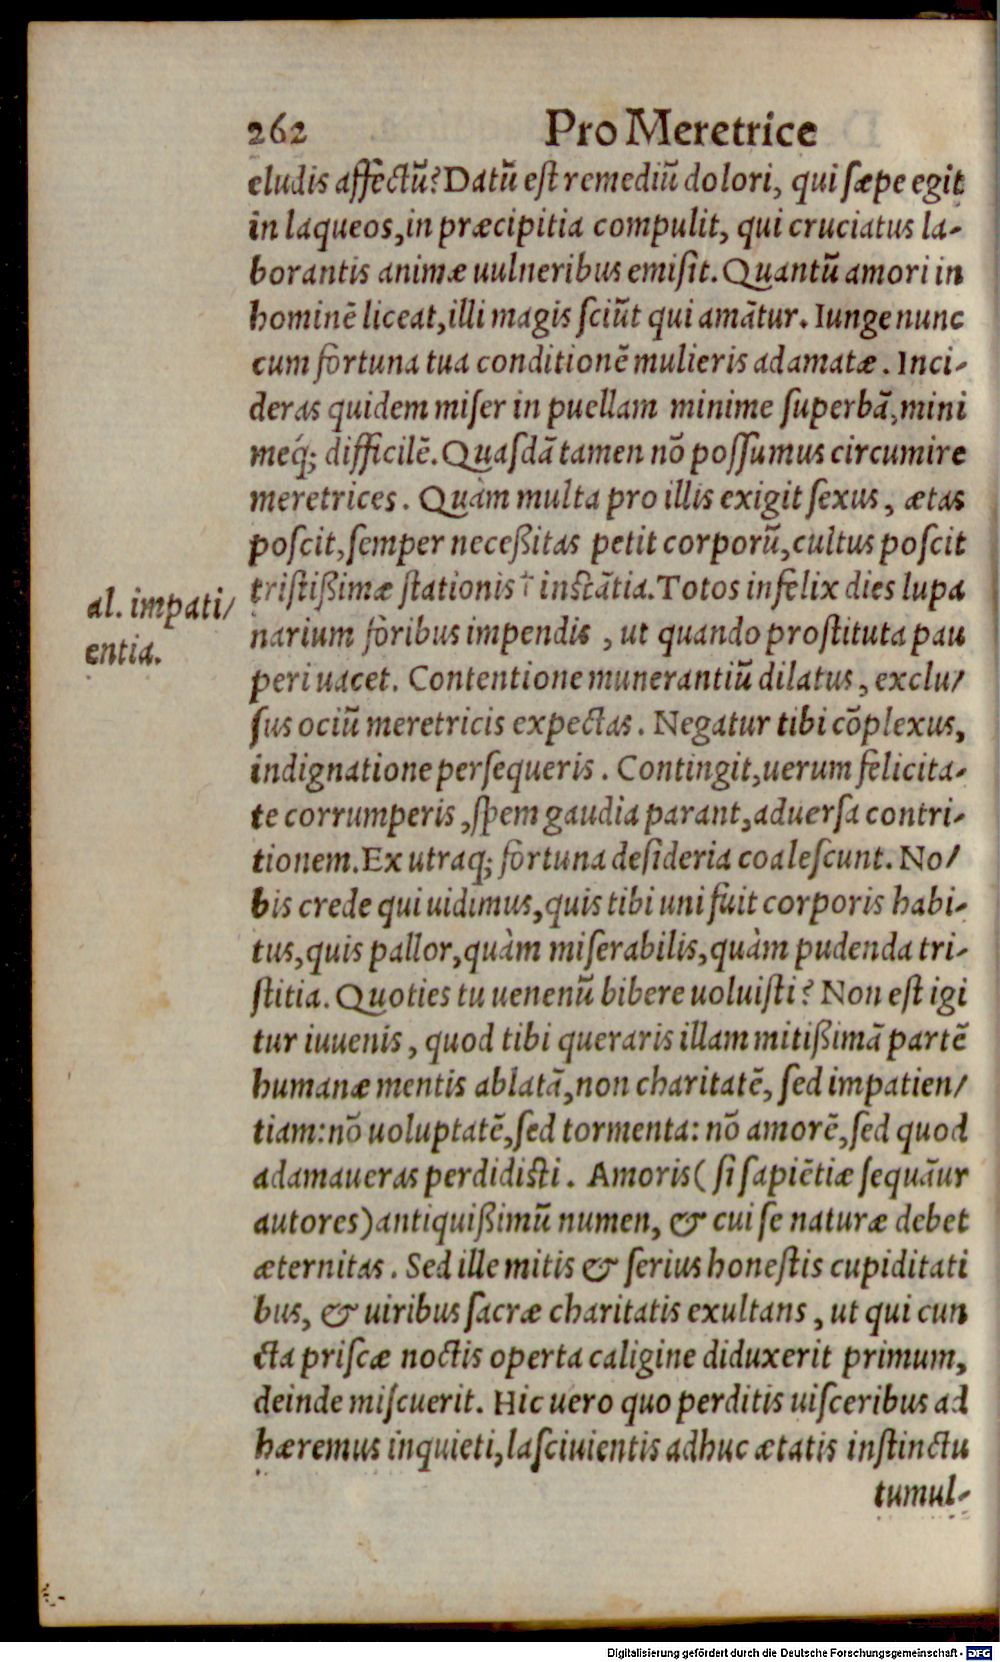 262 Pro Meretrice
eludis affectũ? Datũ est remediũ dolori, qui sæpe egit
in laqueos, in præcipitia compulit, qui cruciatus la-
borantis animæ uulneribus emisit. Quantũ amori in
hominẽ liceat, illi magis sciũt qui amãtur. Iunge nunc
cum fortuna tua conditionẽ mulieris adamatæ. Inci-
deras quidem miser in puellam minime superbã, mini
meq́; difficilẽ. Quasdã tamen nõ possumus circumire
meretrices. Quàm multa pro illis exigit sexus, ætas
poscit, semper neceßitas petit corporũ, cultus poscit
tristißimæ stationis † instãtia. Totos infelix dies lupa
al. impati/
entia.
narium foribus impendis, ut quando prostituta pau
peri uacet. Contentione munerantiũ dilatus, exclu/
sus ociũ meretricis expectas. Negatur tibi cõplexus,
indignatione persequeris. Contingit, uerum felicita-
te corrumperis, spem gaudia parant, aduersa contri-
tionem. Ex utraq; fortuna desideria coalescunt. No/
bis crede qui uidimus, quis tibi uni fuit corporis habi-
tus, quis pallor, quàm miserabilis, quàm pudenda tri-
stitia. Quoties tu uenenũ bibere uoluisti? Non est igi
tur iuuenis, quod tibi queraris illam mitißimã partẽ
humanæ mentis ablatã, non charitatẽ, sed impatien/
tiam: nõ uoluptatẽ, sed tormenta: nõ amorẽ, sed quod
adamaueras perdidisti. Amoris (si sapiẽtiæ sequãur
autores) antiquißimũ numen, & cui se naturæ debet
æternitas. Sed ille mitis & serius honestis cupiditati
bus, & uiribus sacræ charitatis exultans, ut qui cun
cta priscæ noctis operta caligine diduxerit primum,
deinde miscuerit. Hic uero quo perditis uisceribus ad
hæremus inquieti, lasciuientis adhuc ætatis instinctu
tumul-
Digitalisierung gefördert durch die Deutsche Forschungsgemeinschaft - DFG